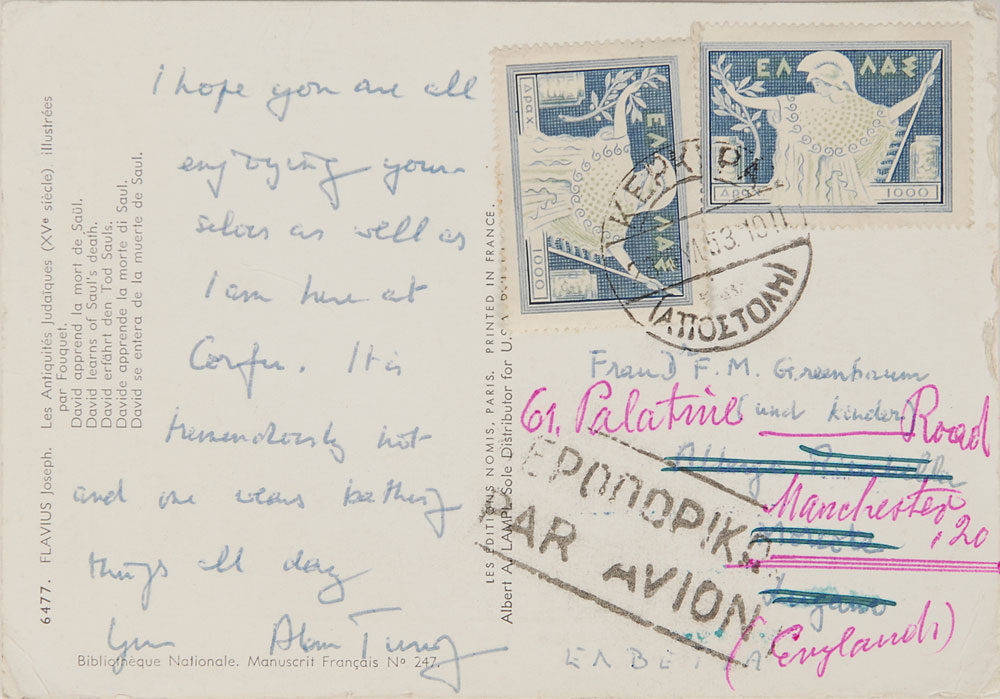 I hope you are all
enjoying your-
selves as well as
I am here at
Corfu. It is
tremendously hot
and one wears bathing
things all day
Yours Alan Turing
6477. FLAVIUS Joseph. Les Antiquités Judaïques (XVe siècle) illustrées
par Fouquet.
David apprend la mort de Saül.
David learns of Saul's death.
David erfährt den Tod Sauls.
Davide apprende la morte di Saul.
David se entera de la muerte de Saul.
Bibliothèque Nationale. Manuscrit Français No 247.
LES EDITIONS NOMIS, PARIS, PRINTED IN FRANCE.
Albert A. LAMPL Sole Distributor for U.S.A.
ΕΛΛΑΣ
ΔΡΑΧ
1000
ΕΛΛΑΣ
ΔΡΑΧ
1000
ΚΕΡΚΥΡΑ
VI.53.10
ΑΠΟΣΤΟΛΗ
Frau D F. M. Greenbaum
(und kinder)
61, Palatine Road
Manchester, 20
(England)
ΑΕΡΟΠΟΡΙΚΩΣ
PAR AVION
ΕΛΒΕΤΙΑ